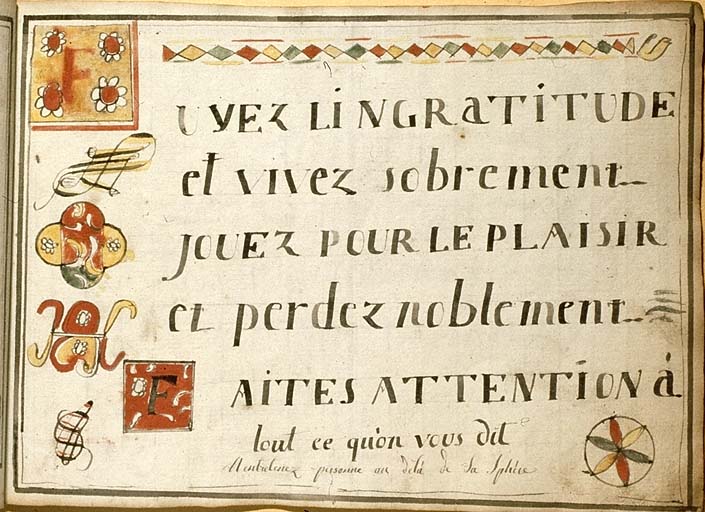 FUYEZ LINGRATITUDE
et vivez sobrement
JOUEZ POUR LE PLAISIR
et perdez noblement
FAITES ATTENTION à
tout ce qu'on vous dit
N'entretenez personne au delà de sa sphère